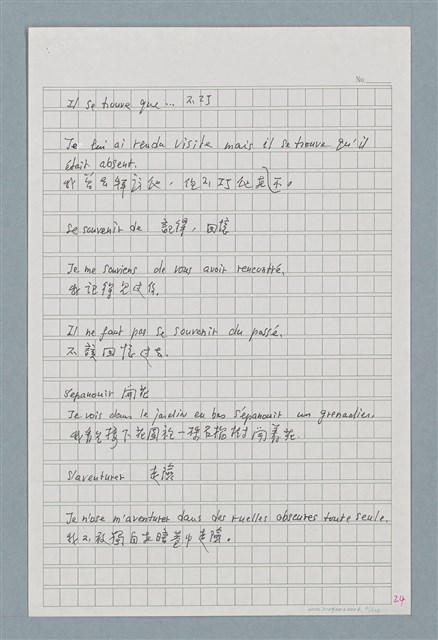 No.
Il se trouve que... 不巧
Je lui ai rendu visite mais il se trouve qu'il
était absent.
我曾去拜訪他，但不巧他不在。
se souvenir de 記得，回憶
Je me souviens de vous avoir rencontré.
我記得見過你。
Il ne faut pas se souvenir du passé.
不該回憶過去。
s'épanouir 開花
Je vois dans le jardin en bas s'épanouir un grenadier.
我看見樓下花園裡一棵石榴樹開著花.
s'aventurer 走險
Je n'ose m'aventurer dans des ruelles obscures toute seule.
我不敢獨自在暗巷中走險。
24